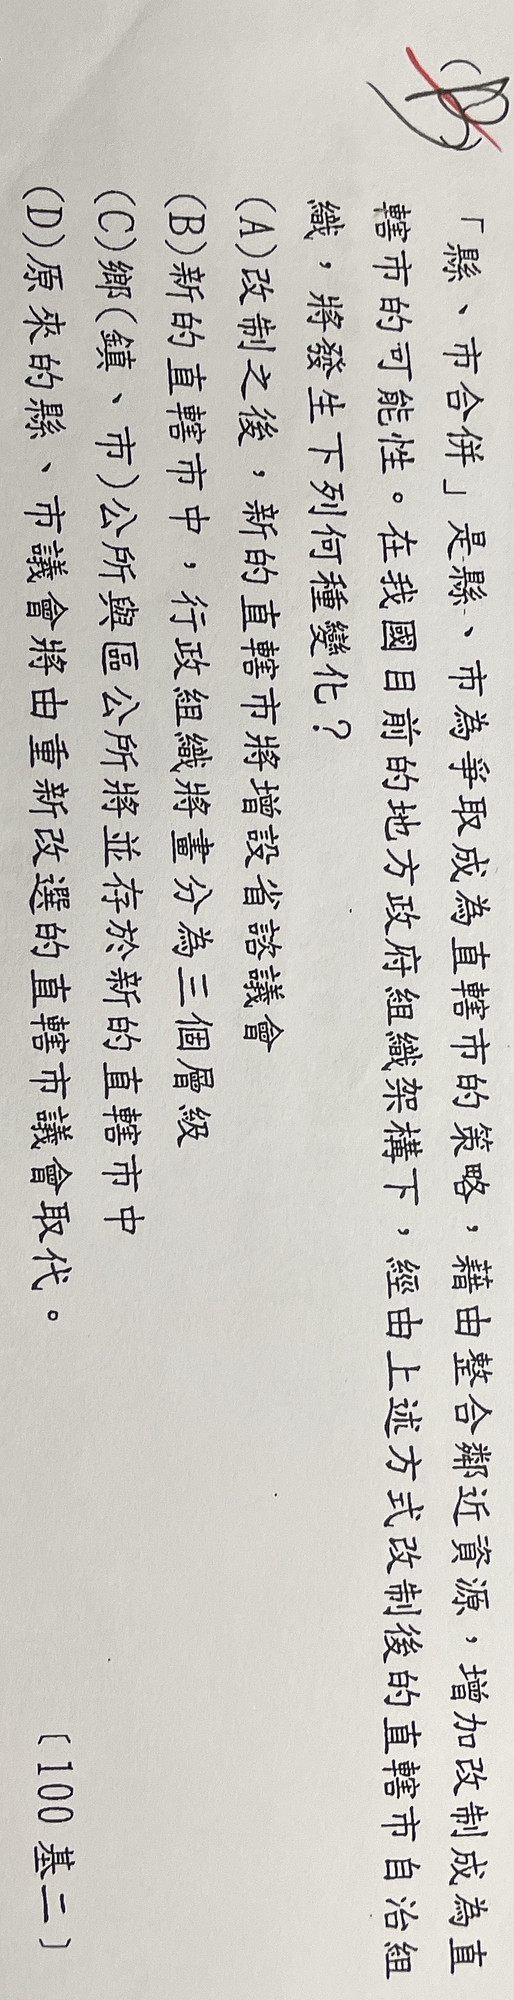 (B)
「縣、市合併」是縣、市為爭取成為直轄市的策略，藉由整合鄰近資源，增加改制成為直
轄市的可能性。在我國目前的地方政府組織架構下，經由上述方式改制後的直轄市自治組
織，將發生下列何種變化？
(A)改制之後，新的直轄市將增設省諮議會
(B)新的直轄市中，行政組織將畫分為三個層級
(C)鄉(鎮、市)公所與區公所將並存於新的直轄市中
(D)原來的縣、市議會將由重新改選的直轄市議會取代。
〔100 基二〕